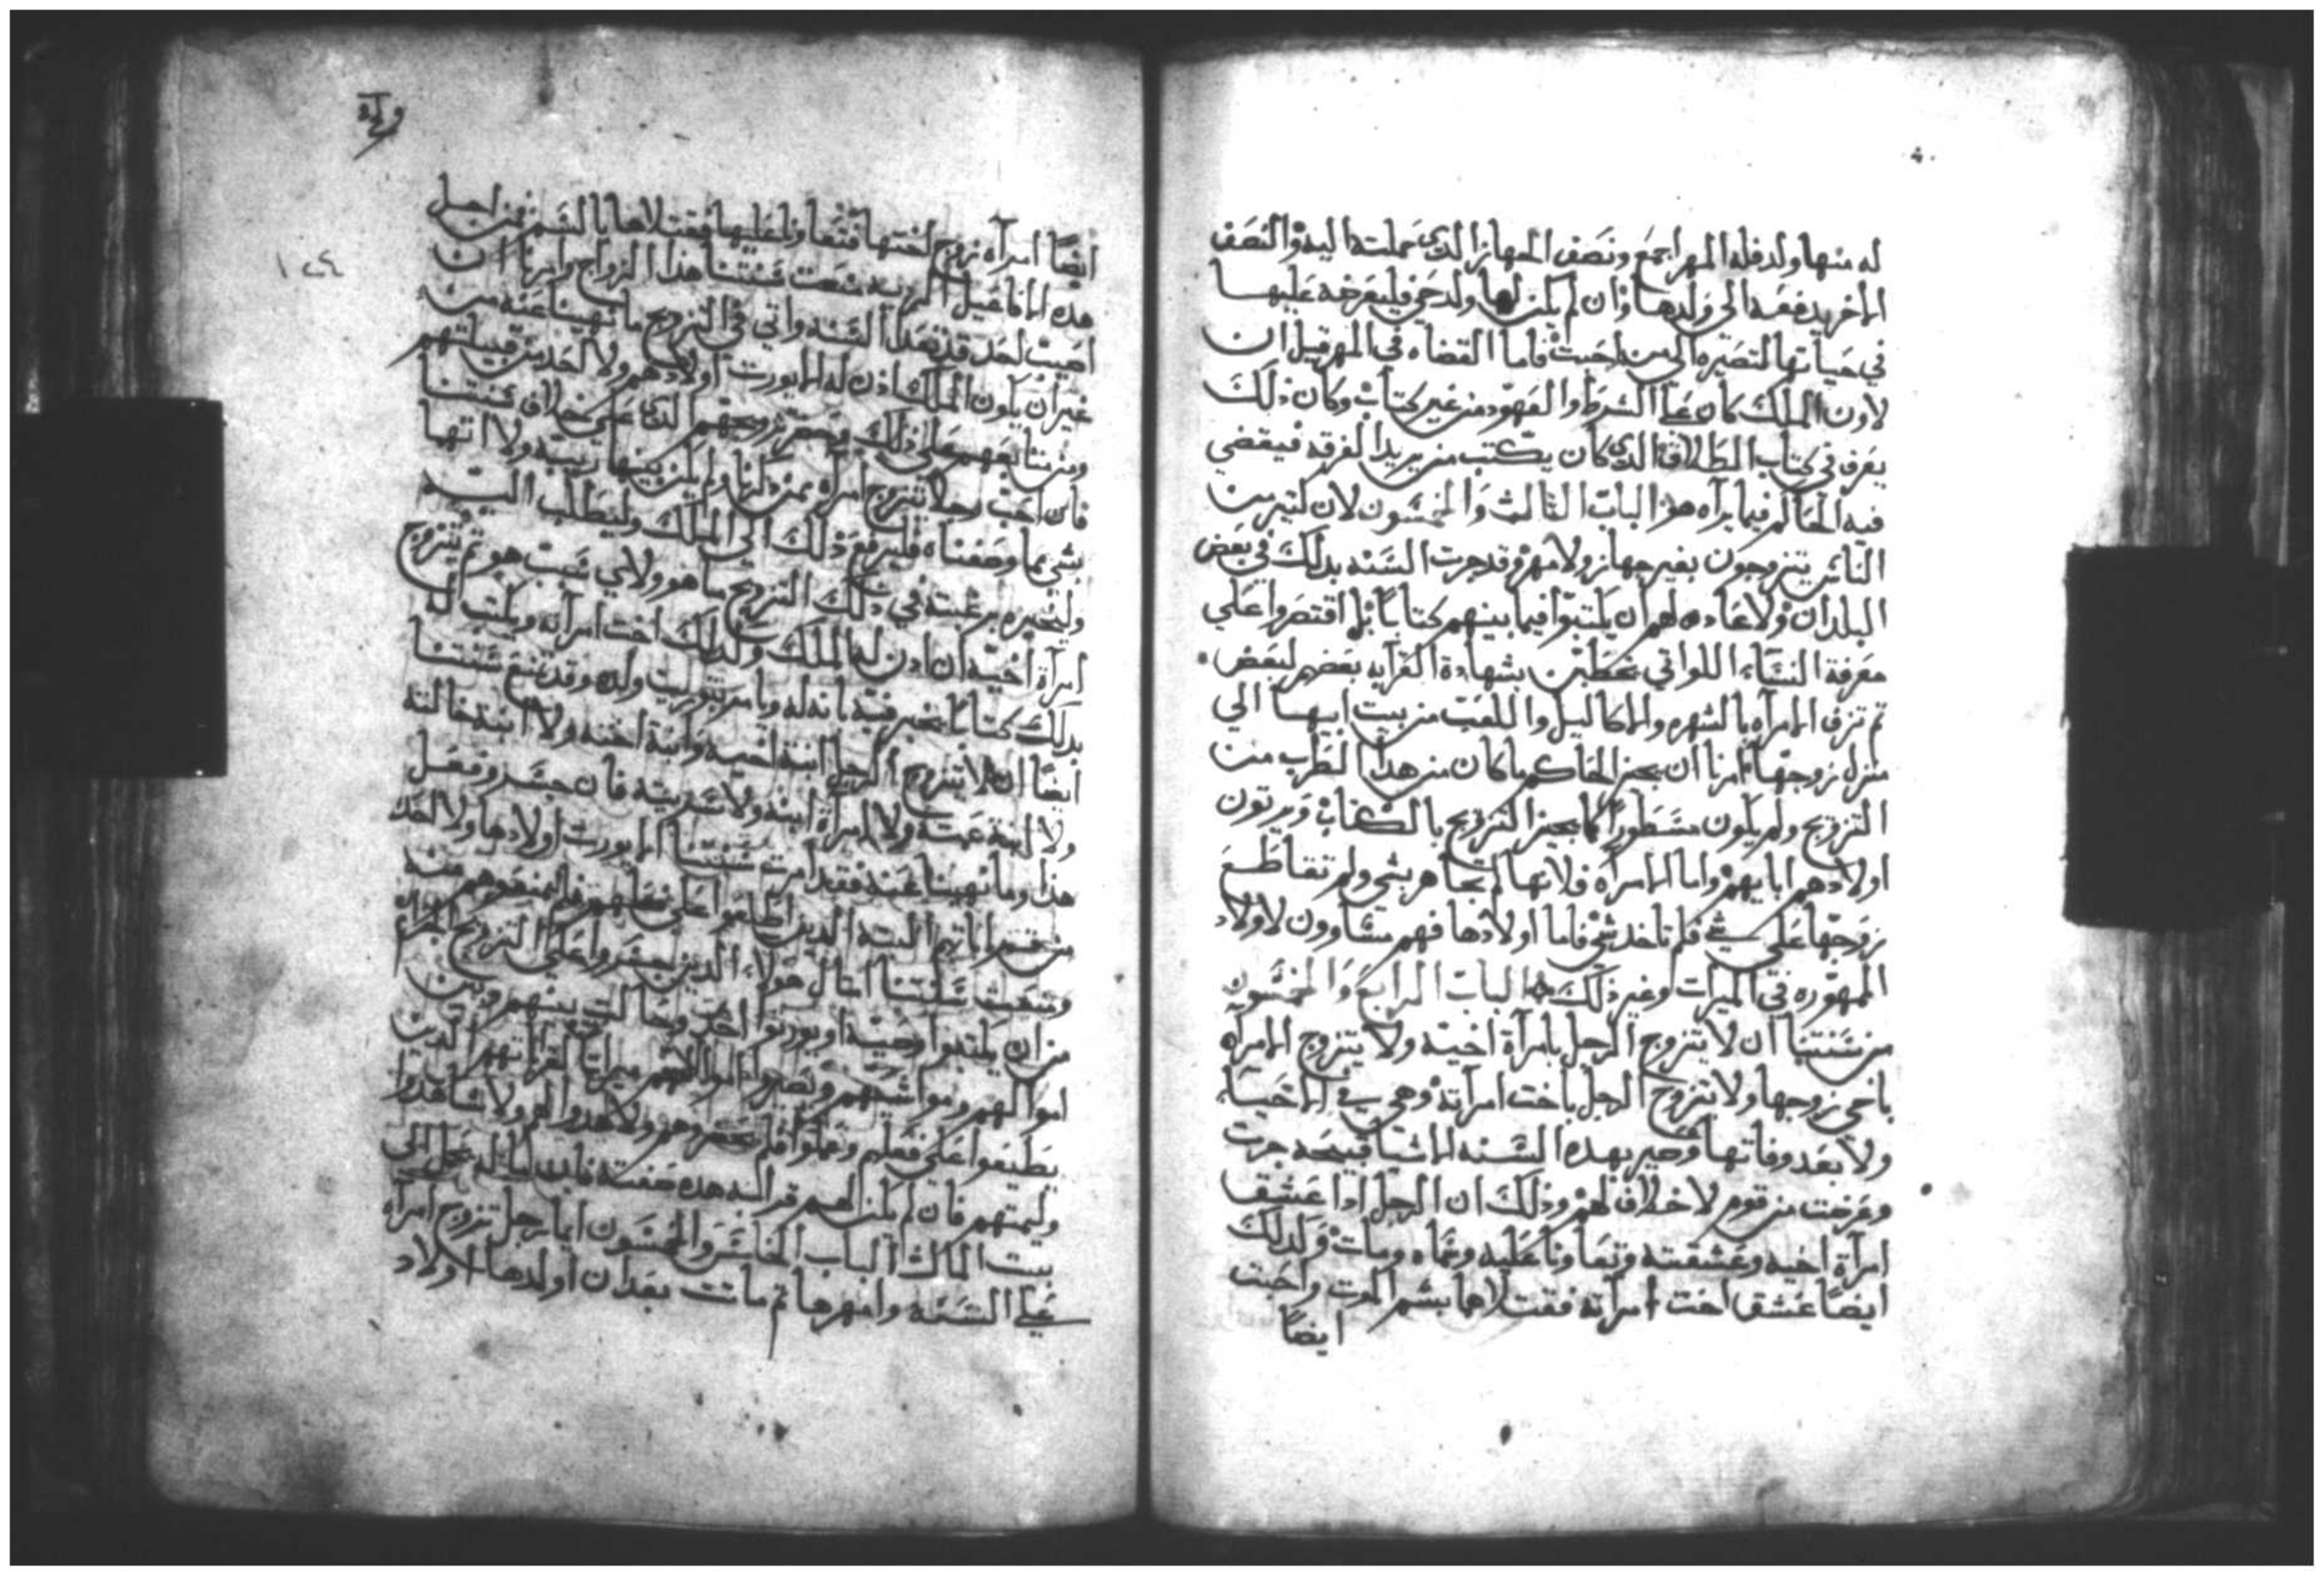 له منها ولد فله المهر اجمع ونصف الجهاز الدي حملته اليه والنصف
الاخر يدفعه الي ولدها وان لم يكن لها ولد حي فليعرضه عليها
في حياتها لتصيره الي من احبت فاما القضاه في المهر قبل ان
لاون الملك كان علي الشرط والعهود من غير كتاب وكان ذلك
يعرف في كتاب الطلاق الدي كان يكتب من يريد الفرقه فيقضي
فيه الحاكم فيما يراه هذ الباب الثالث والخمسون لان كتير من
الناس يتزوجون بغير جهاز ولا مهر وقد جرت السنه بدلك في بعض
البلدان ولا عاده لهم ان يكتبوا فيما بينهم كتابا بل اقتصروا علي
معرفة النساء اللواتي يخطبن بشهادة القرابه بعضهم لبعض
تم تزف الامرآه بالشهره والاكاليل واللعب من بيت ابيها الي
منزل زوجها امرنا ان يجيز الحاكم ما كان من هدا الطرب من
التزويج ولم يكون مسطورا كما يجيز التزويج بالكتاب ويرتون
اولادهم ابايهم واما الامراه فلانها لم تجاهر بشي ولم تقاطع
زوجها علي شي فلم تاخد شي فاما اولادها فهم متساوون لاولاد
المهوره في الميرات وغير ذلك الباب الرابع والخمسون
من سنتنا ان لا يتزوج الرجل بامرآة اخيه ولا يتزوج الامرآه
باخي زوجها ولا يتزوج الرجل باخت امرآته وهي في الحيا
ولا بعد وفاتها وحير بهده السنه لاشيا قبيحه جرت
وعرضت من قوم لا خلاق لهم وذلك ان الرجل ادا عشق
امرآة اخيه وعشقته وتعاونا عليه وسماه ومات وكدلك
ايضا عشق اخت امرآته فقتلاها بسم الموت واحبت
ايضا
ايضا امرآه زوج اختها فتعاونا عليها فقتلاها بالسم فمن اجل
هده الافاعيل الرديه منعت سنتنا هدا الزواج وامرنا ان
احبت احد قد تعدا السنه واتي في التزويج ما نهينا عنه من
غير ان يكون الملك ادن له الا يورت اولادهم ولا احد من قبيلتهم
فان احب رجل يتزوج امراه بمن دكرنا ولم يكن بينها ريبه ولا اتها
بشي مما وصفناه فليرفع ذلك الي الملك وليطلب اليه
وليخبره برغبته في ذلك التزويج ما هو ولاي سبب هو تم يتزوج
امرآة اخيه ان ادن له الملك وكدلك اخت امرآته ويكتب له
بدلك كتابا يخبر فيه بانه له ويامر بتوريت ولده وقد تمنع سنتنا
ايضا ان لا يتزوج الرجل ابنة اخيه وابنة اخته ولا ابنة خالته
ولا ابنة عمته ولا امرآة ابنه ولا سريته فان جسر وفعل
هدا وما نهينا عنه فقد امرت سنتنا الا يورت اولادها ولا احد
من قراباتهم البته الدين اطلعوا علي فعلهم فلم يمنعوهم منه
وتمنعت سنتنا امتال هولاء الدين جسروا علي التزويج الحرام
من ان يكتبوا وصيه او يورتوا احد وحالت بينهم وبين
اموالهم ومواشيهم وتصير اموالهم ميراتا لقراباتهم الدين
يطيعوا علي فعلهم وعملوا فلم يحضروهم ولا هدوا لهم ولا شاهدوا
وليمتهم فان لم يكن لهم قرابه هده صفته فاموالهم تحمل الي
بيت المال الباب الخامس والخمسون ايما رجل تزوج امرآه
علي السنه وامهرها تم ماتت بعد ان اولدها اولاد
١٢٤